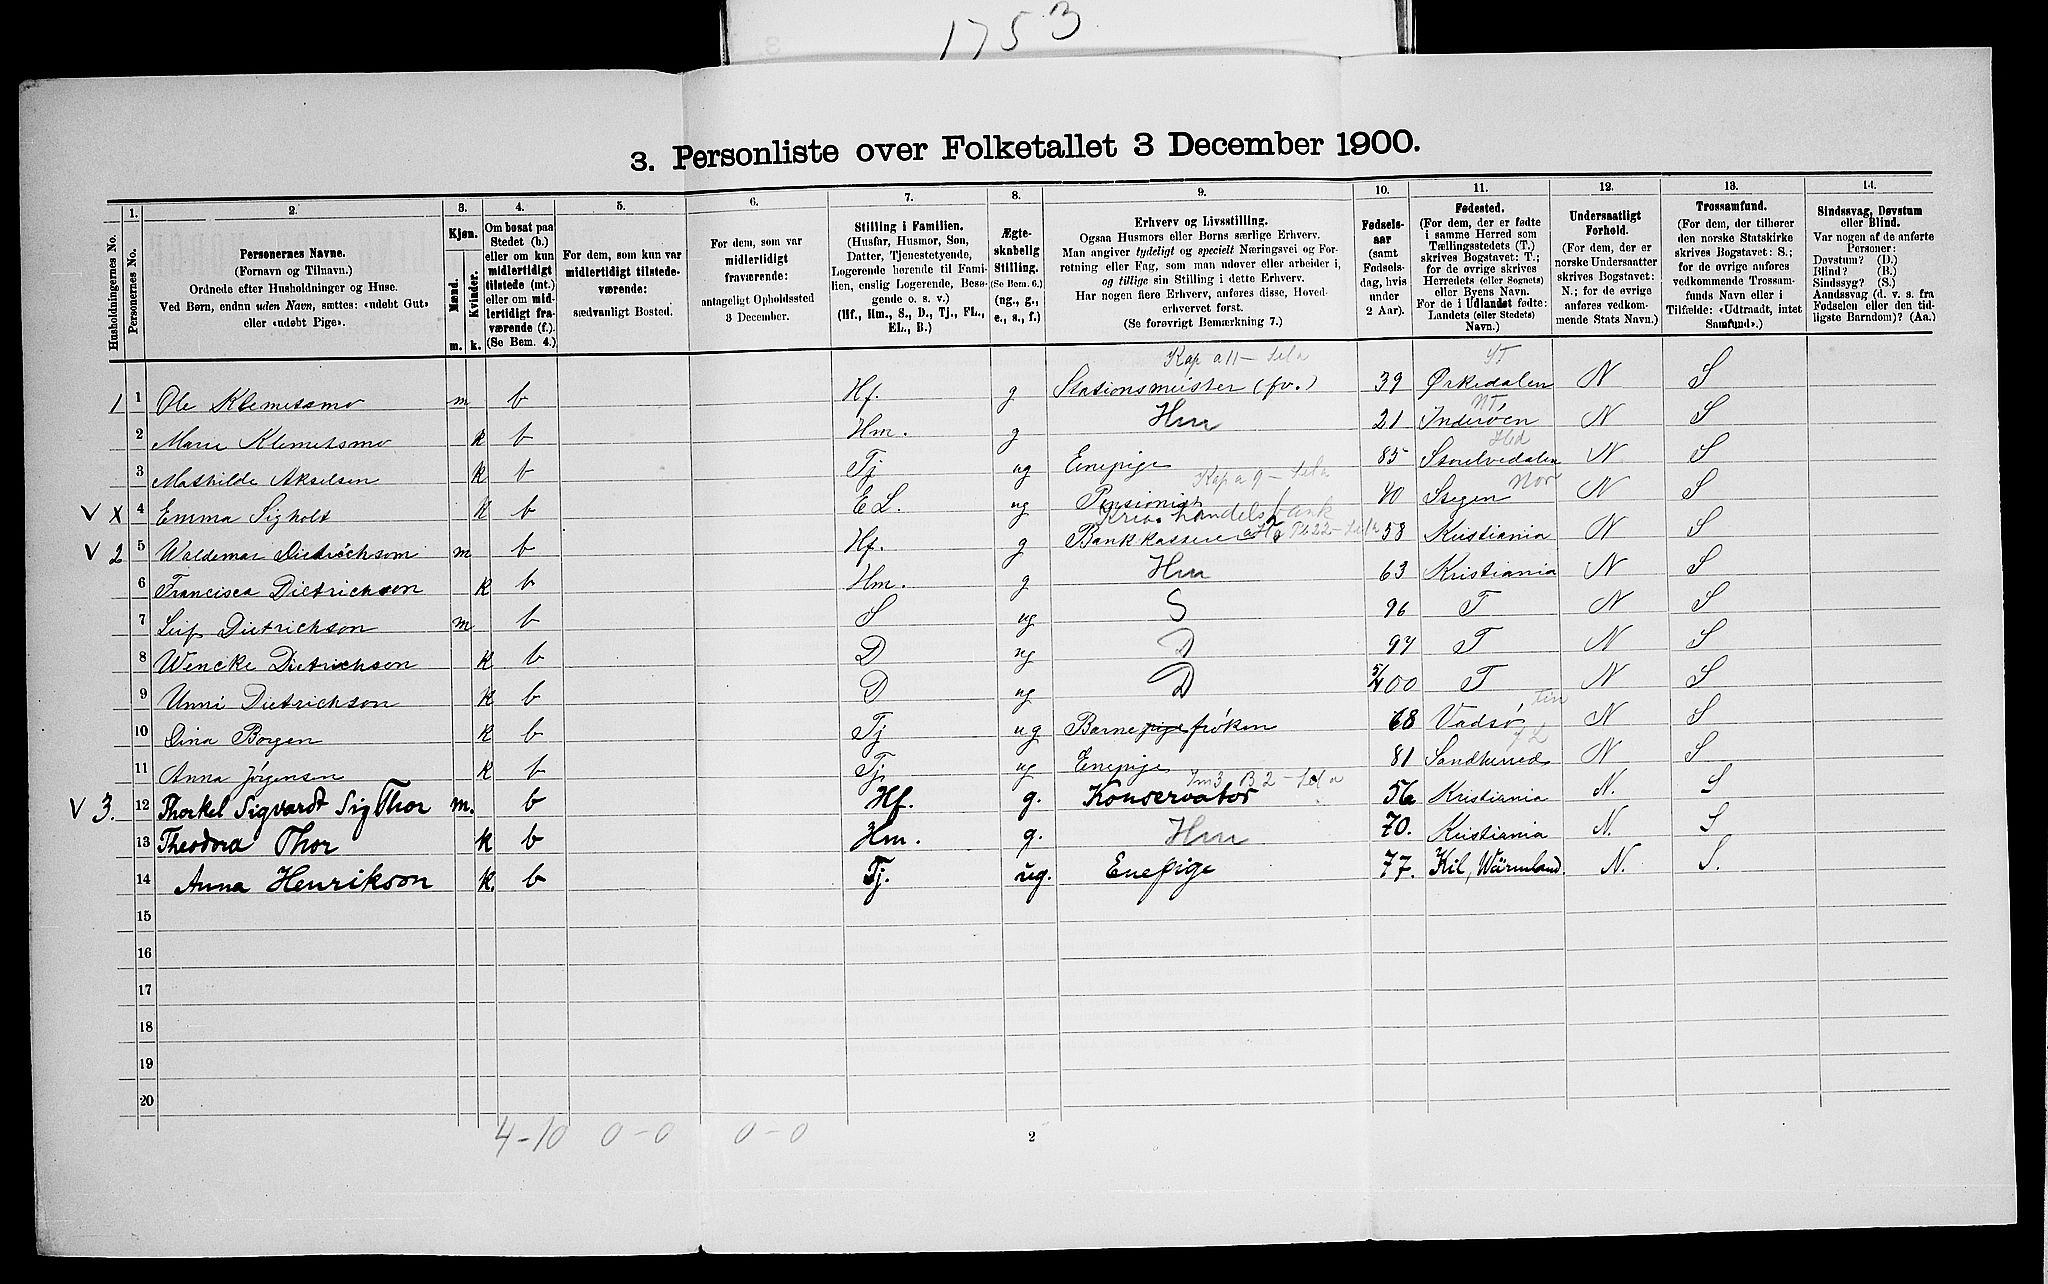 1753
3. Personliste over Folketallet 3 December 1900.
Husholdningernes No.
1. Personernes No.
2. Personernes Navne. (Fornavn og Tilnavn.) Ordnede efter Husholdninger og Huse. Ved Børn, endnu uden Navn, sættes: «udøbt Gut» eller «udøbt Pige».
3. Kjøn. Mænd. m. Kvinder. k.
4. Om bosat paa Stedet (b.) eller om kun midlertidigt tilstede (mt.) eller om midlertidigt fraværende (f.). (Se Bem. 4.)
5. For dem, som kun var midlertidigt tilstedeværende: sædvanligt Bosted.
6. For dem, som var midlertidigt fraværende: antageligt Opholdssted 3 December.
7. Stilling i Familien. (Husfar, Husmor, Søn, Datter, Tjenestetyende, Logerende hørende til Familien, enslig Logerende, Besøgende o. s. v.) (Hf., Hm., S., D., Tj., FL., EL., B.)
8. Ægteskabelig Stilling. (Se Bem. 6.) (ug., g., e., s., f.)
9. Erhverv og Livsstilling. Ogsaa Husmors eller Børns særlige Erhverv. Man angiver tydeligt og specielt Næringsvei og Forretning eller Fag, som man udøver eller arbeider i, og tillige sin Stilling i dette Erhverv. Har nogen flere Erhverv, anføres disse, Hovederhvervet først. (Se forøvrigt Bemærkning 7.)
10. Fødselsaar (samt Fødselsdag, hvis under 2 Aar).
11. Fødested. (For dem, der er fødte i samme Herred som Tællingsstedets (T.) skrives Bogstavet: T.; for de øvrige skrives Herredets (eller Sognets) eller Byens Navn. For de i Udlandet fødte: Landets (eller Stedets) Navn.)
12. Undersaatligt Forhold. (For dem, der er norske Undersaatter skrives Bogstavet: N.; for de øvrige anføres vedkommende Stats Navn.)
13. Trossamfund. (For dem, der tilhører den norske Statskirke skrives Bogstavet: S.; for de øvrige anføres vedkommende Trossamfunds Navn eller i Tilfælde: «Udtraadt, intet Samfund».)
14. Sindssvag, Døvstum eller Blind. Var nogen af de anførte Personer: Døvstum? (D.) Blind? (B.) Sindssyg? (S.) Aandssvag (d. v. s. fra Fødselen eller den tidligste Barndom)? (Aa.)
Kap a 11 ST
1 1 Ole Klemetsmo m b Hf. g Stationsmeister (fv.) 39 Ørkedalen N S
NT
2 Marie Klemetsmo k b Hm. g Hm 21 Inderøen N S
Hed
3 Mathilde Akselsen k b Tj ug Enepige 85 Storelvedalen N S
Kap a 9 Nor
V X 4 Emma Sigholt k b E L. ug Pensionist 40 Stegen N S
Kria. handelsbank
V 2 5 Waldemar Dietrichson m b Hf. g Bankkasserer 58 Kristiania N S
6 Francisca Dietrichson k b Hm. g Hm 63 Kristiania N S
7 Leif Dietrichson m b S ug S 96 T N S
8 Wencke Dietrichson k b D ug D 97 T N S
9 Unni Dietrichson k b D ug D 5/4 00 T N S
Fin
10 Dina Borgen k b Tj ug Barnepige frøken 68 Vadsø N S
11 Anna Jørgensen k b Tj. ug Enepige 81 Sandherred N S
Im3 B2
V 3. 12 Thorkel Sigvardt Sig Thor m. b Hf. g. Konservator 56 Kristiania N. S
13 Theodora Thor k b Hm. g. Hm 70. Kristiania N. S
14 Anna Henrikson k. b Tj. ug. Enepige 77. Kil, Wärmland. N. S.
15
16
17
18
19
20
4-10 0-0 0-0 2